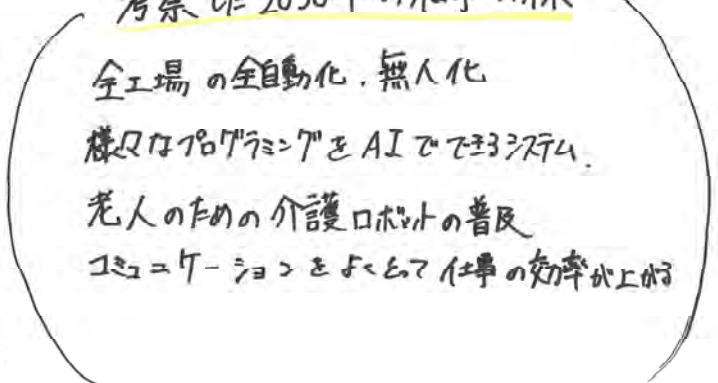 考察した2030年の
全工場の全自動化、無人化
様々なプログラミングをAIでできるシステム.
老人のための介護ロボットの普及
コミュニケーションをよくとって仕事の効率が上がる